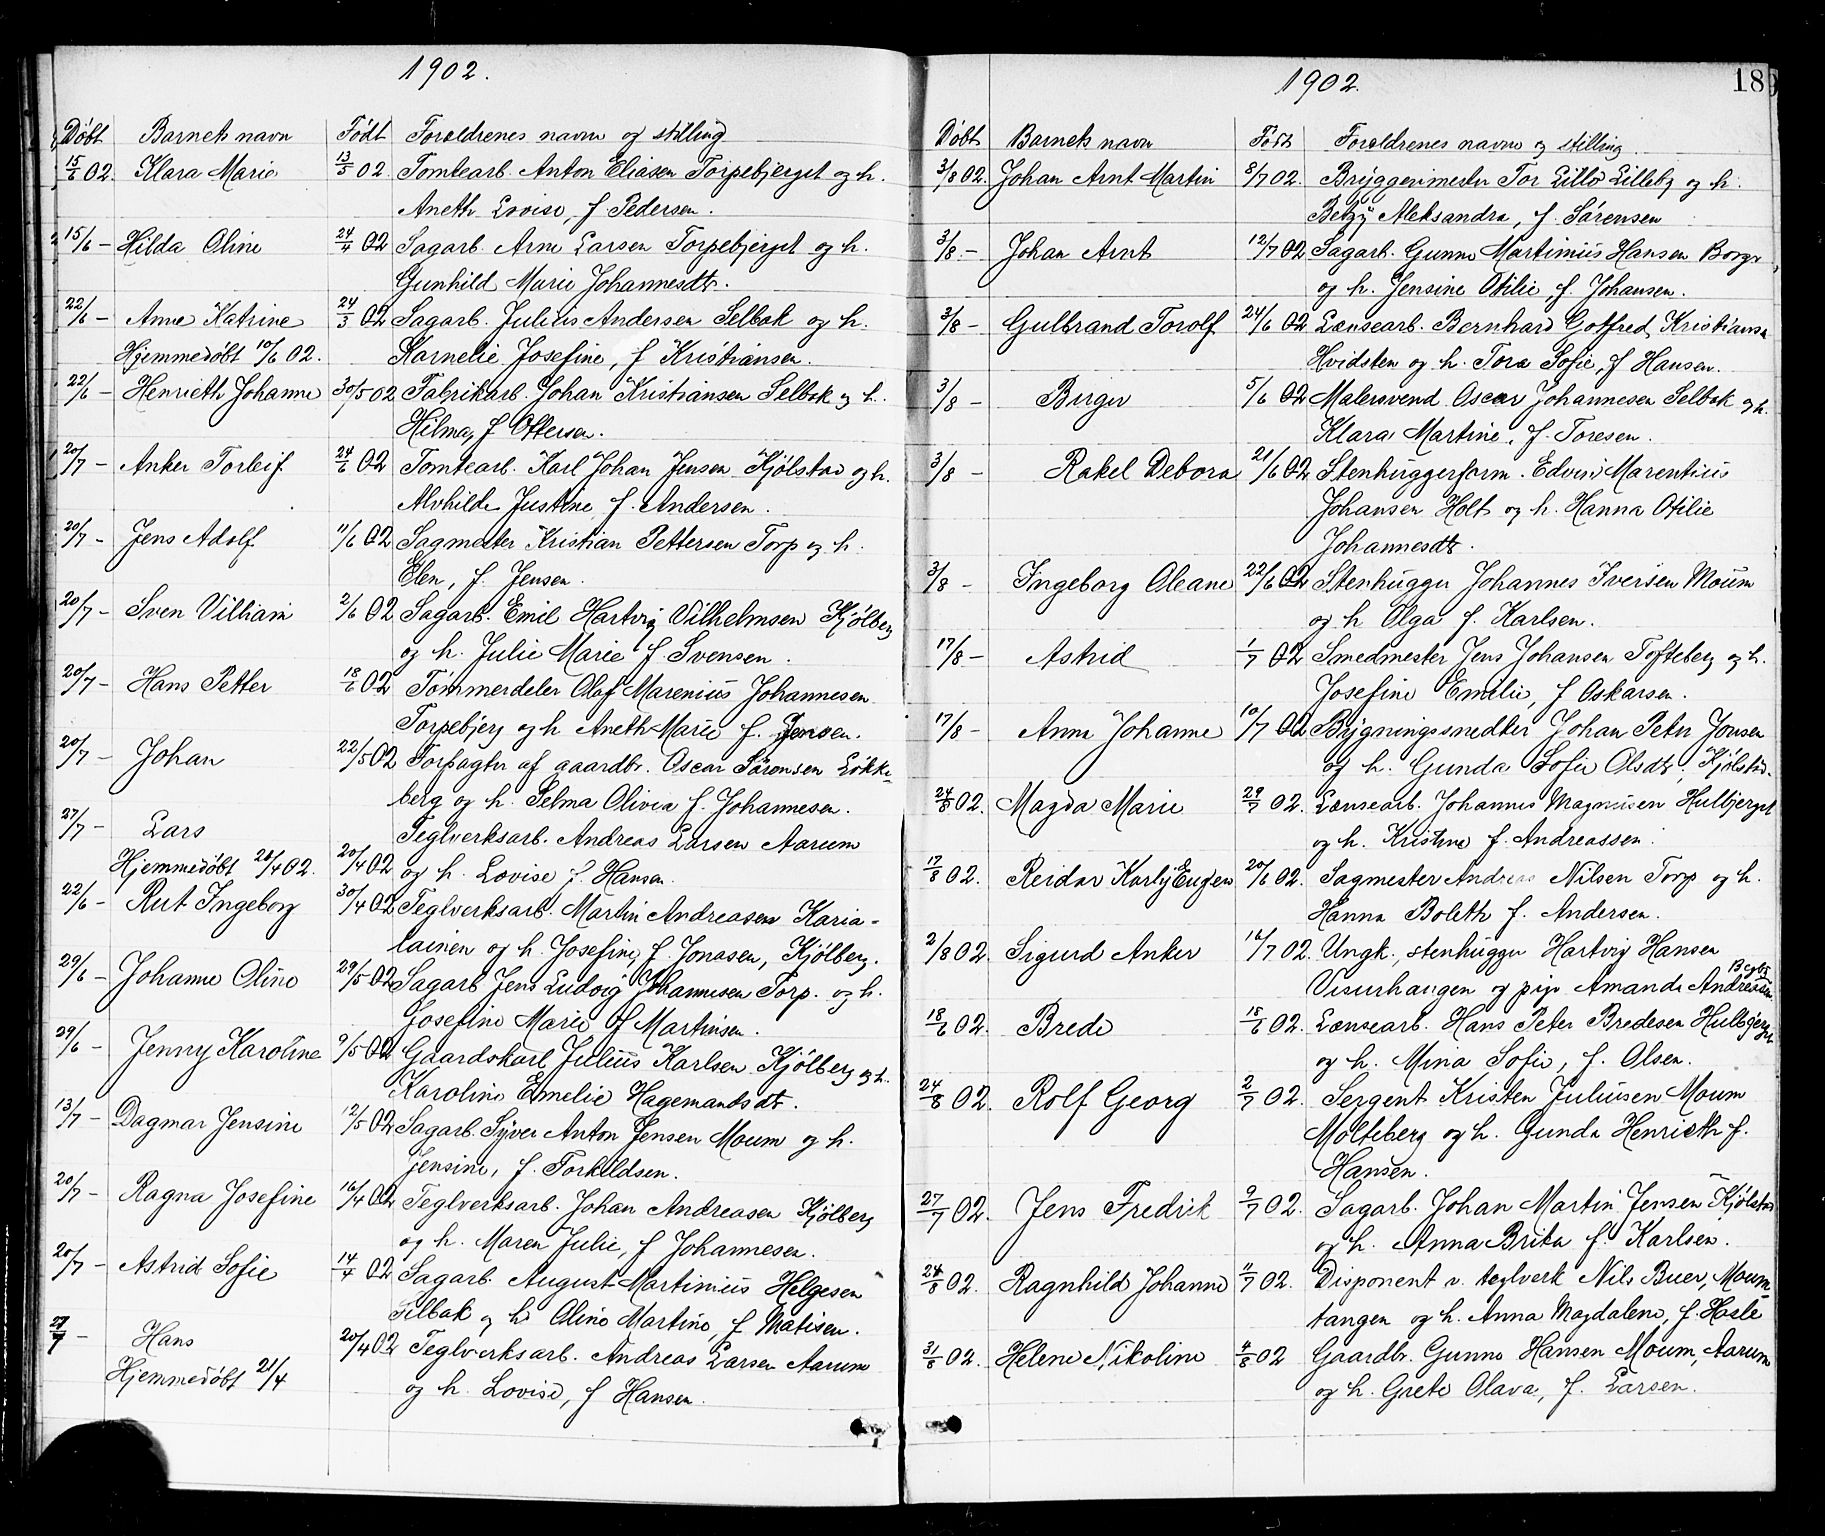 1902.
Døbt Barnets navn Født Forældrenes navne og stilling
15/6 02. Klara Marie 13/5 02 Tomtearb. Anton Eliasen Torpebjerget og h.
Aneth Lovise, f Pedersen.
15/6 – Hilda Oline 24/4 02 Sagarb. Arne Larsen Torpebjerget og h.
Gunhild Marie Johannesdt.
22/6 – Anne Katrine 24/3 02 Sagarb. Julius Andersen Selbak og h.
Hjemmedøbt 10/6 02. Kornelie Josefine, f Kristiansen.
22/6 – Henrieth Johanne 30/5 02 Fabrikarb. Johan Kristiansen Selbak og h.
Hilma, f Ottersen.
20/7 – Anker Torleif 24/6 02 Tomtearb. Karl Johan Jensen Kjølstad og h.
Alvhilde Justine f. Andersen.
20/7 – Jens Adolf 11/6 02 Sagmester Kristian Pettersen Torp og h.
Elen, f. Jensen.
20/7 – Sven Villiam 2/6 02 Sagarb. Emil Hartvig Vilhelmsen Kjølberg
og h. Julie Marie f Svensen.
20/7 – Hans Petter 18/6 02 Tømmerdeler Olaf Marenius Johannesen
Torpebjerg og h Aneth Marie f. Jensen.
20/7 – Johan 22/5 02 Forpagter af gaardbr. Oscar Sørensen Løkke-
berg og h. Selma Olivia f. Johannesen.
27/7 – Lars Teglverksarb. Andreas Larsen Aarum
Hjemmedøbt 20/4 02. 20/4 02 og h. Lovise f. Hansen.
22/6 – Rut Ingeborg 30/4 02 Teglverksarb. Martin Andreasen Karia-
lainen og h. Josefine, f. Jonasen, Kjølberg.
29/6 – Johanne Oline 29/5 02 Sagarb Jens Ludvig Johannesen Torp. og h.
Josefine Marie f Martinsen.
29/6 – Jenny Karoline 9/5 02 Gaardskarl Julius Karlsen Kjølberg og h.
Karoline Emelie Hagemandsdt.
13/7 – Dagmar Jensine 12/5 02 Sagarb. Syver Anton Jensen Moum og h.
Jensine, f. Torkildsen.
20/7 – Ragna Josefine 16/4 02 Teglverksarb. Johan Andreasen Kjølberg
og h. Maren Julie, f Johannesen.
20/7 – Astrid Sofie 14/4 02 Sagarb. August Martinius Helgesen
Selbak og h. Oline Martine, f Matisen.
27/7 – Hans 20/4 02 Teglverksarb. Andreas Larsen Aarum
Hjemmedøbt 21/4 og h. Lovise, f Hansen.
1902. 18
Døbt Barnets navn Født Forældrenes navne og stilling
3/8 02. Johan Arnt Martin 8/7 02. Bryggerimester Tor Lillo Lilleby og h.
Betzy Aleksandra, f. Sørensen
3/8 – Johan Arnt 12/7 02 Sagarb. Gunne Martinius Hansen Borge,
og h. Jensine Otilie, f. Johansen.
3/8 – Gulbrand Torolf 24/6 02 Lænsearb. Bernhard Gotfred Kristiansen
Hvidsten og h. Tora Sofie, f Hansen.
3/8 – Birger 5/6 02 Malersvend Oscar Johannesen Selbak og h.
Klara Martine, f. Toresen.
3/8 – Rakel Debora 21/6 02 Stenhuggerform. Edvin Marentius
Johansen Holt og h. Hanna Otilie
Johannesdt.
3/8 – Ingeborg Oleane 22/6 02 Stenhugger Johannes Iversen Moum
og h Olga f. Karlsen.
17/8 – Astrid 1/7 02 Smedmester Jens Johansen Tofteberg og h.
Josefine Emelie, f Oskarsen.
17/8 – Anna Johanne 10/7 02 Bygningssnedker Johan Peter Jonsen
og h. Gunda Sofie Olsdt. Kjølstad.
24/8 02. Magda Marie 29/7 02. Lænsearb. Johannes Magnusen Hulbjerget
og h. Kristine f. Andreassen
17/8 02. Reidar Karly Eugen 20/6 02. Sagmester Andreas Nilsen Torp og h.
Hanna Boleth f. Andersen.
2/8 02. Sigurd Anker 16/7 02. Ungk., stenhugger Hartvig Hansen
Visurhaugen og pige Amanda Andreasen Begby
18/6 02. Brede 18/6 02. Lænsearb. Hans Peter Bredesen Hulbjerget
og h. Mina Sofie, f. Olsen.
24/8 02. Rolf Georg 2/7 02. Sergent Kristen Juliusen Moum
Molteberg og h. Gunda Henrieth f.
Hansen.
27/7 02. Jens Fredrik 9/7 02. Sagarb. Johan Martin Jensen Kjølstad
og h. Anna Brita f. Karlsen.
24/8 02. Ragnhild Johanne 11/7 02. Disponent v. teglverk Nils Buer, Moum-
tangen og h. Anna Magdalene, f. Hasle
31/8 02. Helene Nikoline 4/8 02 Gaardbr. Gunne Hansen Moum, Aarum
og h. Grete Olava, f. Larsen.